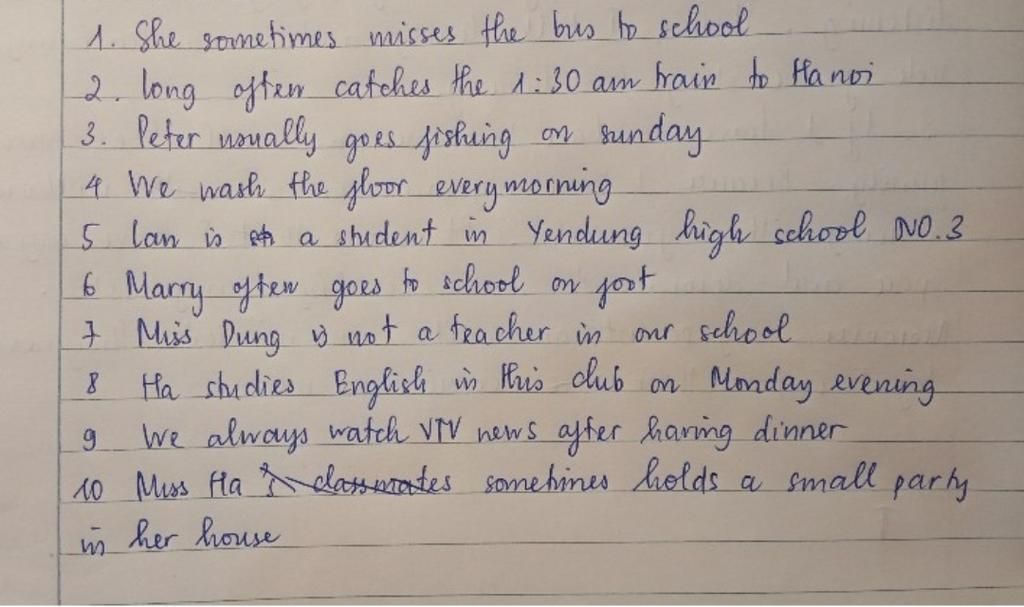 1. She sometimes misses the bus to school
2. long often catches the 1:30 am train to Hanoi
3. Peter usually goes fishing on sunday
4 We wash the floor every morning
5 lan is a student in Yendung high school NO.3
6 Marry often goes to school on foot
7 Miss Dung is not a teacher in our school
8 Ha studies English in this club on Monday evening
9 We always watch VTV news after having dinner
10 Miss Ha classmates sometimes holds a small party
in her house